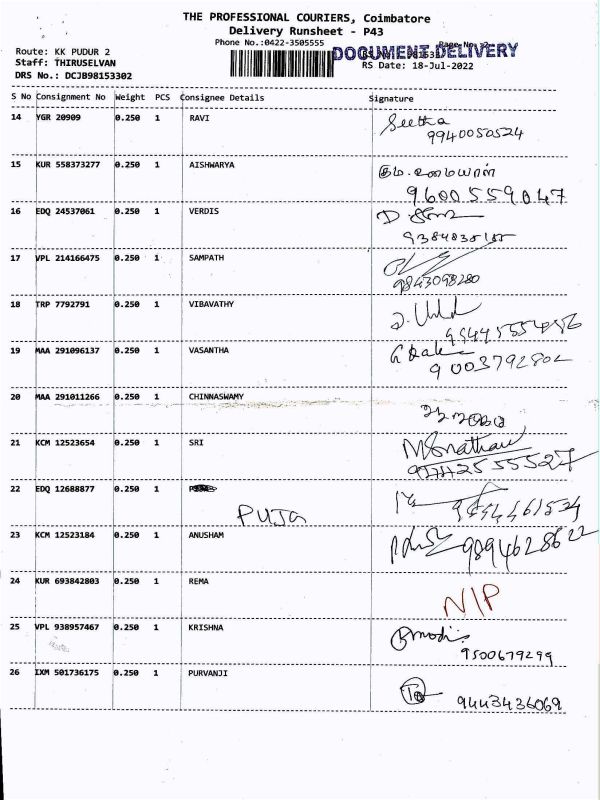 THE PROFESSIONAL COURIERS, Coimbatore
Delivery Runsheet - P43
Phone No.:0422-3505555
DOCUMENT DELIVERY
Route: KK PUDUR 2
Staff: THIRUSELVAN
RS Date: 18-Jul-2022
DRS No.: DCJB98153302
S No Consignment No Weight PCS Consignee Details Signature
14 YGR 20909 0.250 1 RAVI Seetha
9940050524
15 KUR 558373277 0.250 1 AISHWARYA
9600559047
16 EDQ 24537061 0.250 1 VERDIS
17 VPL 214166475 0.250 1 SAMPATH
9843098280
18 TRP 7792791 0.250 1 VIBAVATHY
19 MAA 291096137 0.250 1 VASANTHA
9003792802
20 MAA 291011266 0.250 1 CHINNASWAMY
21 KCM 12523654 0.250 1 SRI
22 EDQ 12688877 0.250 1
PUJA
23 KCM 12523184 0.250 1 ANUSHAM 9894628622
24 KUR 693842803 0.250 1 REMA
N/P
25 VPL 938957467 0.250 1 KRISHNA
9500679299
26 IXM 501736175 0.250 1 PURVANJI
9443436069